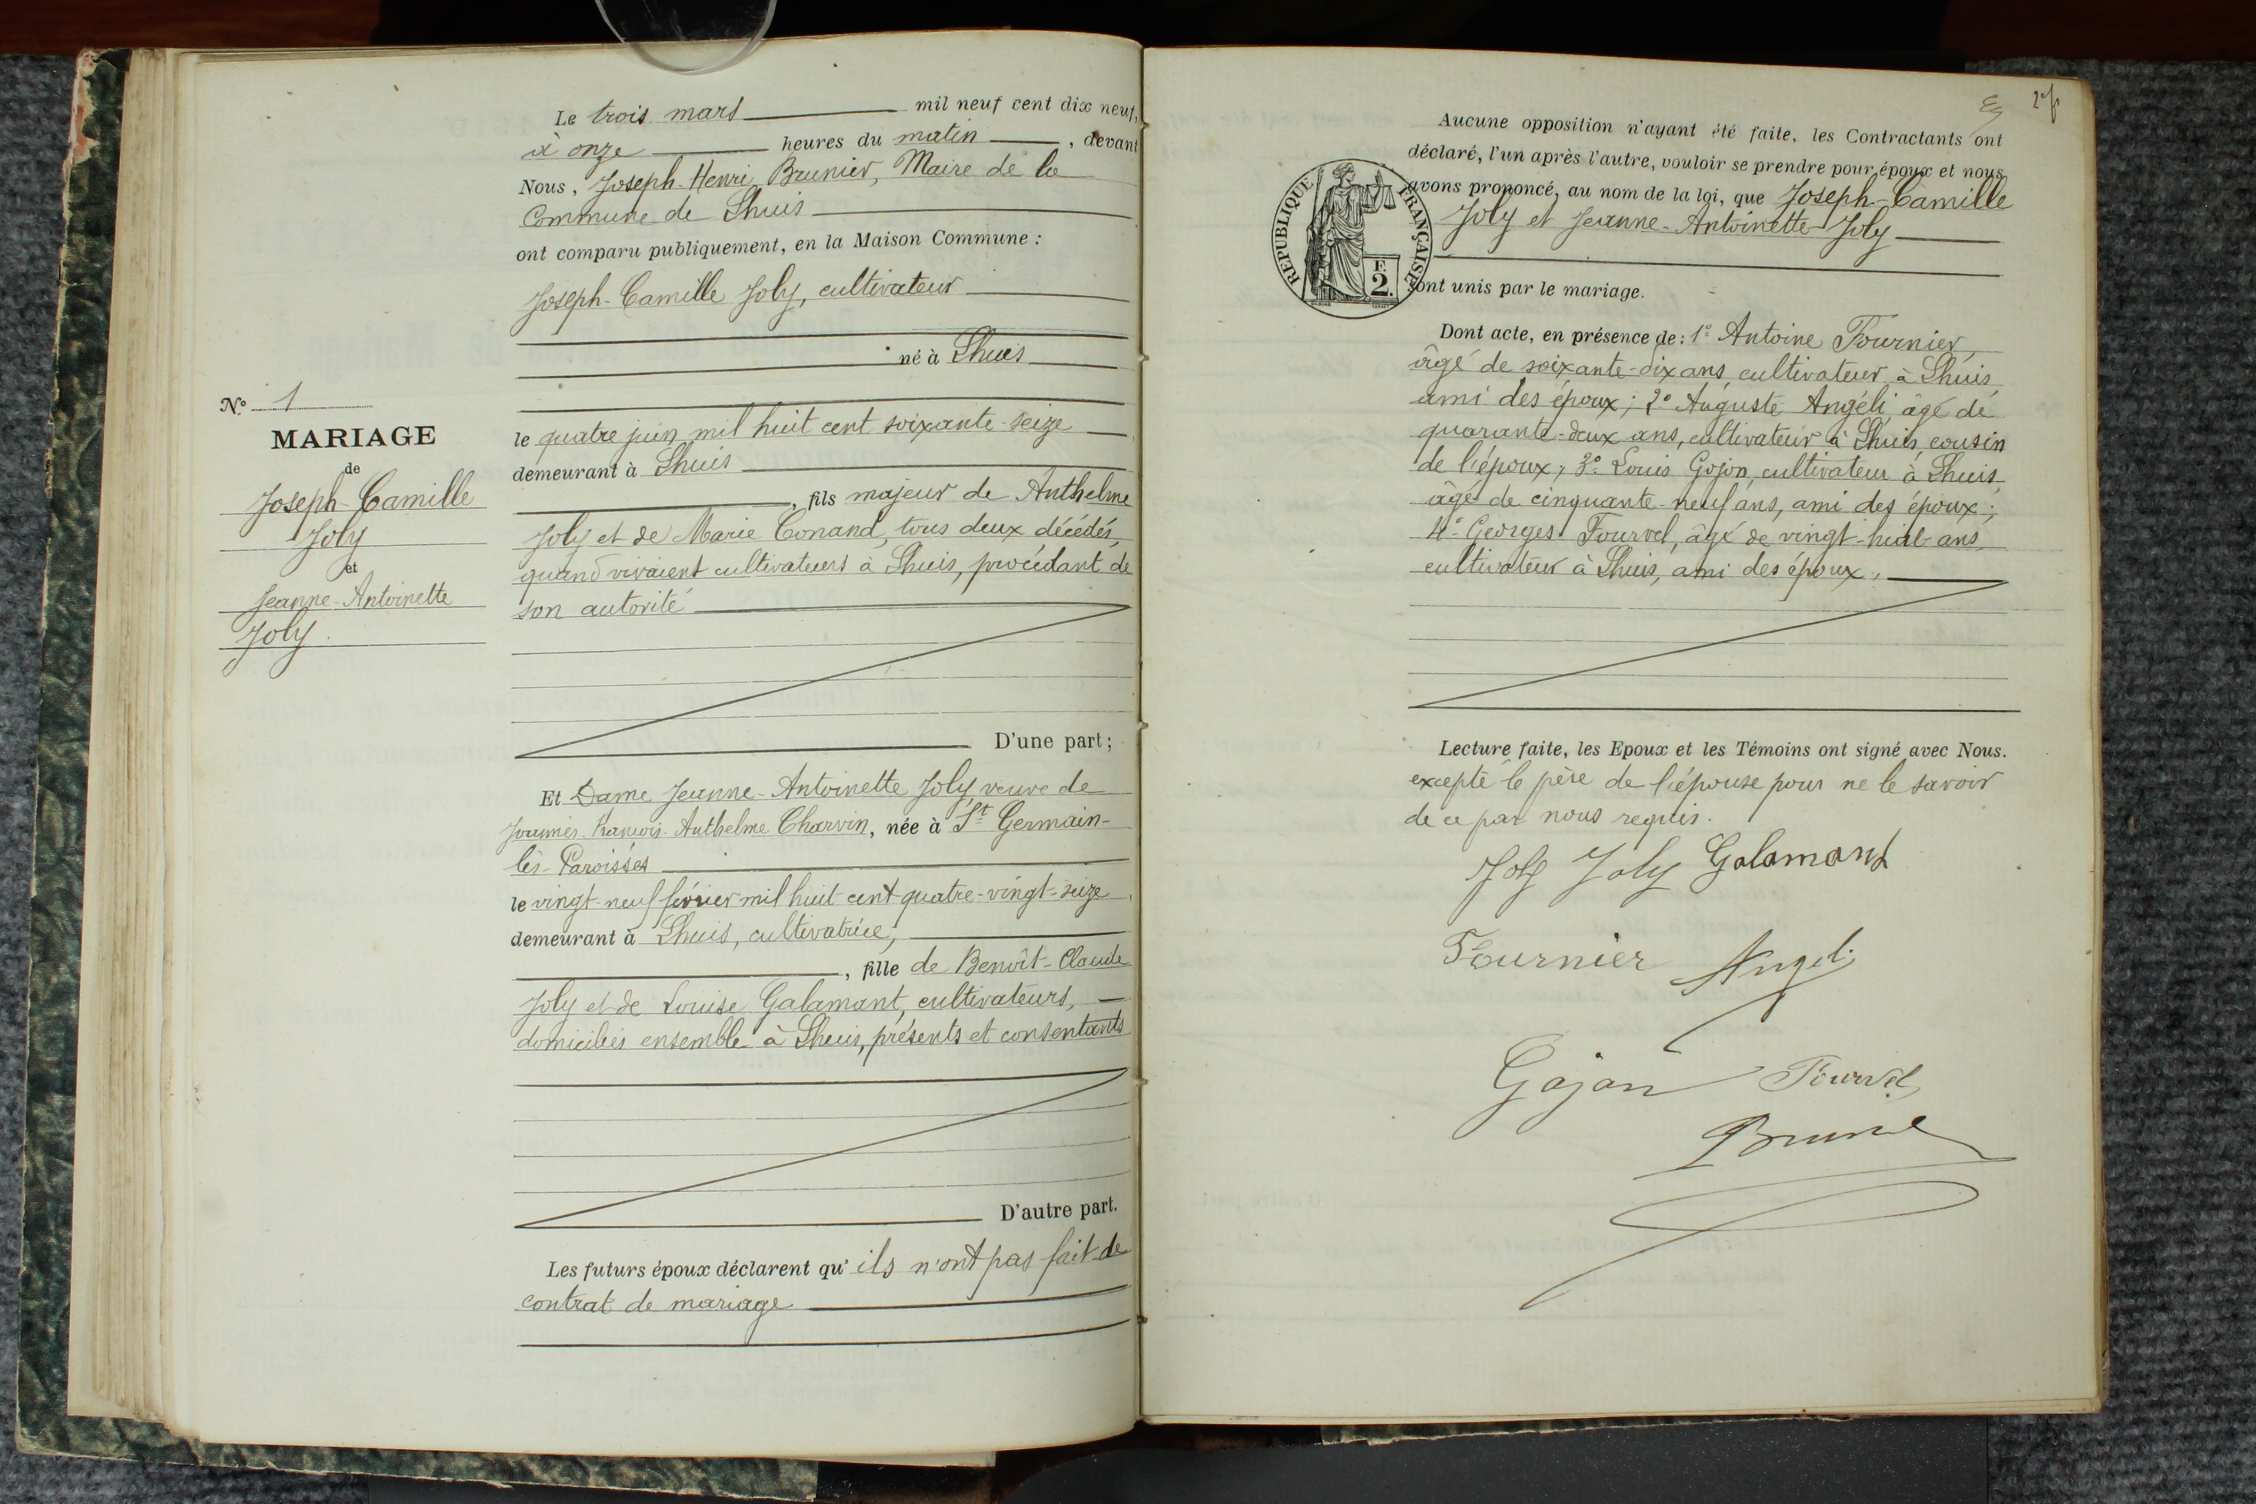 Le trois mars mil neuf cent dix neuf,
à onze heures du matin, devant
Nous, Joseph-Henri Brunier, Maire de la
Commune de Lhuis
ont comparu publiquement, en la Maison Commune :
Joseph-Camille Joly, cultivateur
né à Lhuis
le quatre juin mil huit cent soixante-seize
demeurant à Lhuis
, fils majeur de Anthelme
Joly et de Marie Conand, tous deux décédés,
quand vivaient cultivateurs à Lhuis, procédant de
son autorité
D'une part;
N° 1
MARIAGE
de
Joseph-Camille
Joly
et
Jeanne-Antoinette
Joly.
Et Dame Jeanne-Antoinette Joly veuve de
François-Anthelme Charvin, née à St Germain-
lès-Paroisses
le vingt-neuf février mil huit cent quatre-vingt-seize
demeurant à Lhuis, cultivatrice,
, fille de Benoît-Claude
Joly et de Louise Galamant, cultivateurs,
domiciliés ensemble à Lhuis, présents et consentants
D'autre part.
Les futurs époux déclarent qu'ils n'ont pas fait de
contrat de mariage
Aucune opposition n'ayant été faite, les Contractants ont
déclaré, l'un après l'autre, vouloir se prendre pour époux et nous
avons prononcé, au nom de la loi, que Joseph-Camille
Joly et Jeanne-Antoinette Joly
RÉPUBLIQUE FRANÇAISE
F.
2.
sont unis par le mariage.
Dont acte, en présence de : 1° Antoine Fournier,
âgé de soixante-dix ans, cultivateur à Lhuis
ami des époux ; 2° Auguste Angéli, âgé de
quarante-deux ans, cultivateur à Lhuis, cousin
de l'époux ; 3° Louis Gojon, cultivateur à Lhuis,
âgé de cinquante-neuf ans, ami des époux ;
4° Georges Fourvel, âgé de vingt-huit ans,
cultivateur à Lhuis, ami des époux.
Lecture faite, les Epoux et les Témoins ont signé avec Nous.
excepté le père de l'épouse pour ne le savoir
de ce par nous requis.
Joly Joly Galamant
Fournier Angeli
Gojon Fourvel
Brunie